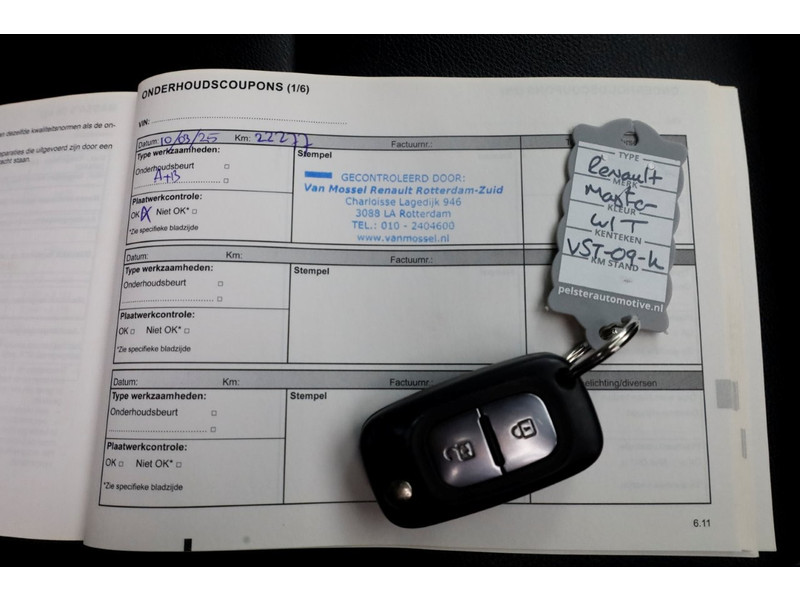 en dezelfde kwaliteitsnormen als de on-
paraties die uitgevoerd zijn door een
acht staan.
ONDERHOUDSCOUPONS (1/6)
VIN:
Datum: 10/03/25 Km: 22277 Factuurnr.:
Type werkzaamheden:
Onderhoudsbeurt □
A+B □
Plaatwerkcontrole:
OK X Niet OK* □
*Zie specifieke bladzijde
Stempel
GECONTROLEERD DOOR:
Van Mossel Renault Rotterdam-Zuid
Charloisse Lagedijk 946
3088 LA Rotterdam
TEL.: 010 - 2404600
www.vanmossel.nl
Datum: Km: Factuurnr.:
Type werkzaamheden:
Onderhoudsbeurt □
Plaatwerkcontrole:
OK □ Niet OK* □
*Zie specifieke bladzijde
Stempel
Datum: Km: Factuurnr. elichting/diversen
Type werkzaamheden:
Onderhoudsbeurt □
Plaatwerkcontrole:
OK □ Niet OK* □
*Zie specifieke bladzijde
Stempel
6.11
TYPE
Renault
MERK
Master
KLEUR
WIT
KENTEKEN
VST-09-K
KM STAND
pelsterautomotive.nl